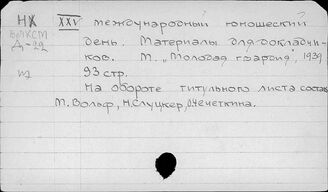 НХ XXV международный юношеский
ВЛКСМ день. Материалы для докладчи-
Д-22 ков. М., "Молодая гвардия", 1939
93 стр.
На обороте титульного листа состав.
М. Вольф, Н. Слуцкер, Чечеткина.